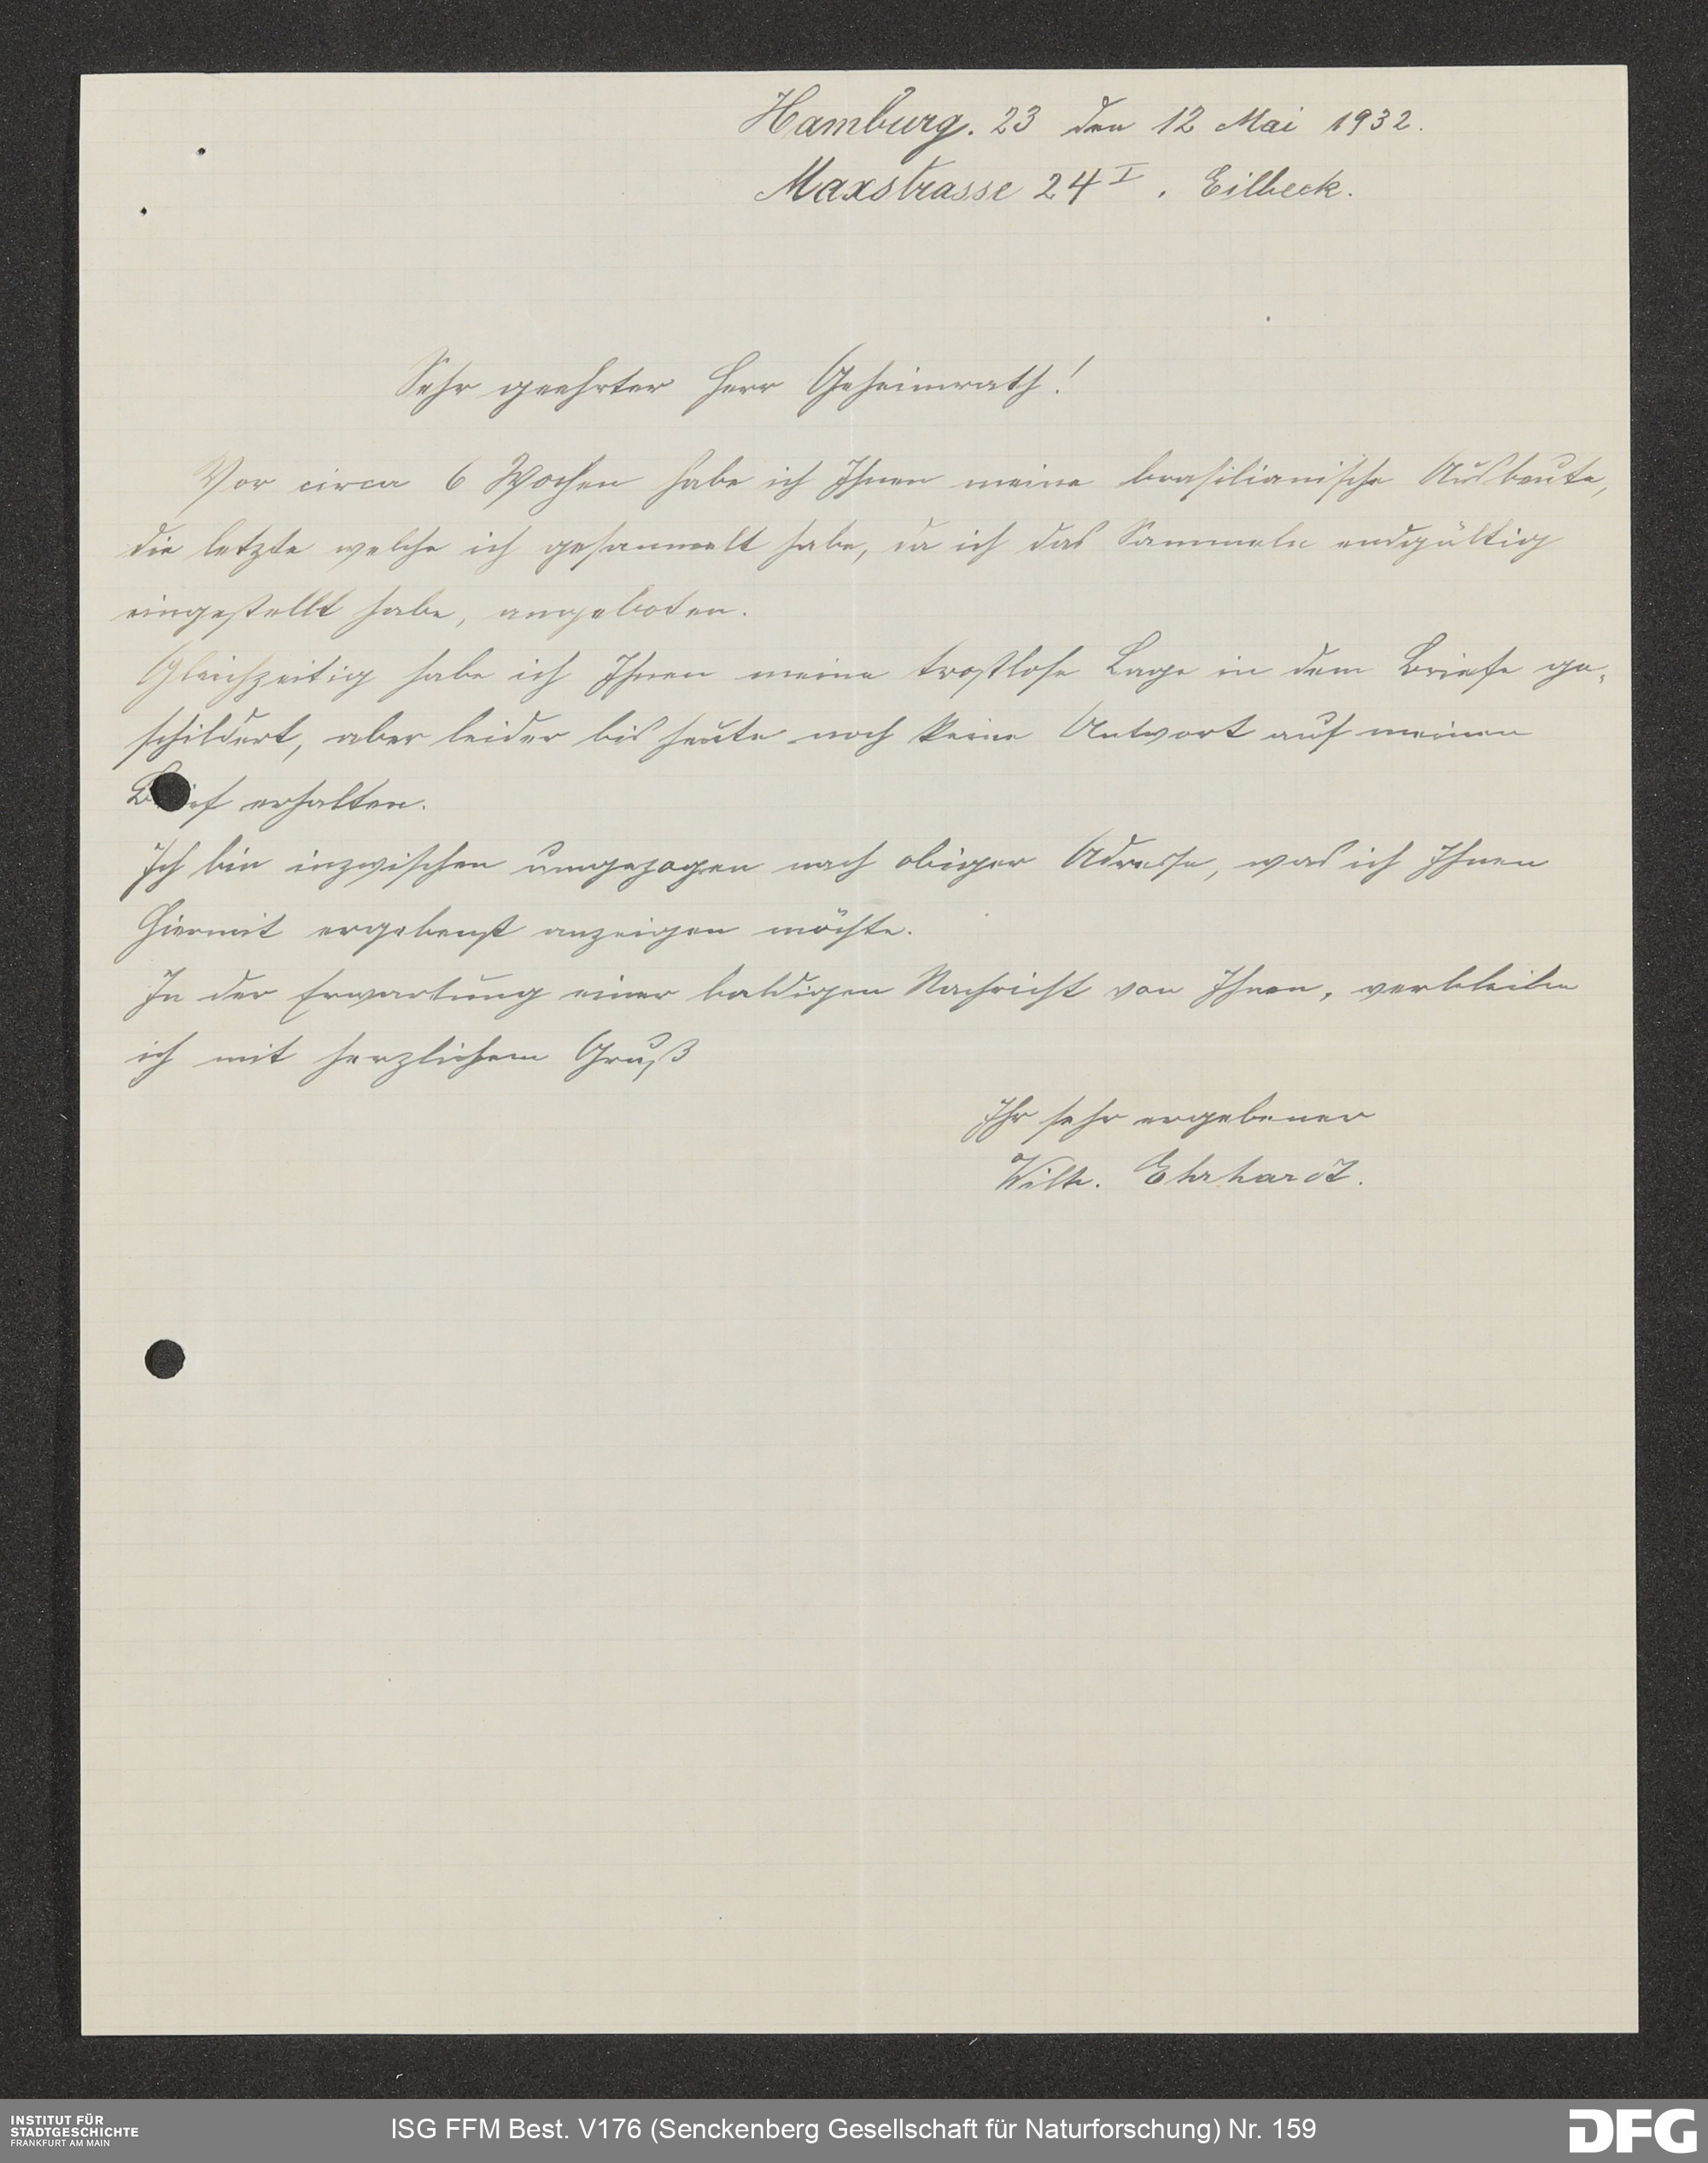 Hamburg. 23 den 12 Mai 1932.
Maxstrasse 24 I. Eilbeck.
Sehr geehrter Herr Geheimrath!
Vor circa 6 Wochen habe ich Ihnen meine brasilianische Ausbeute,
die letzte welche ich gesammelt habe, da ich das Sammeln endgültig
eingestellt habe, angeboten.
Gleichzeitig habe ich Ihnen meine trostlose Lage in dem Briefe ge-
schildert, aber leider bis heute noch keine Antwort auf meinen
Brief erhalten.
Ich bin inzwischen umgezogen nach obiger Adresse, was ich Ihnen
hiermit ergebenst anzeigen möchte.
In der Erwartung einer baldigen Nachricht von Ihnen, verbleibe
ich mit herzlichem Gruß
Ihr sehr ergebener
Wilh. Ehrhardt.
INSTITUT FÜR
STADTGESCHICHTE
FRANKFURT AM MAIN
ISG FFM Best. V176 (Senckenberg Gesellschaft für Naturforschung) Nr. 159
DFG